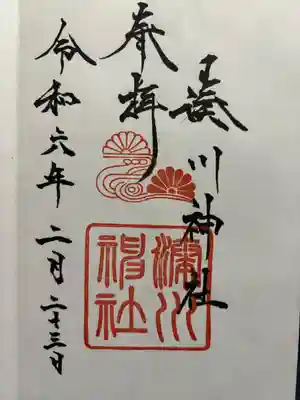 奉拝
湊川神社
湊川
神社
令和六年二月二十三日